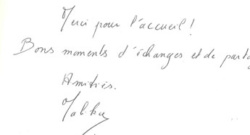 Merci pour l'accueil !
Bons moments d'échanges et de
Amitiés.